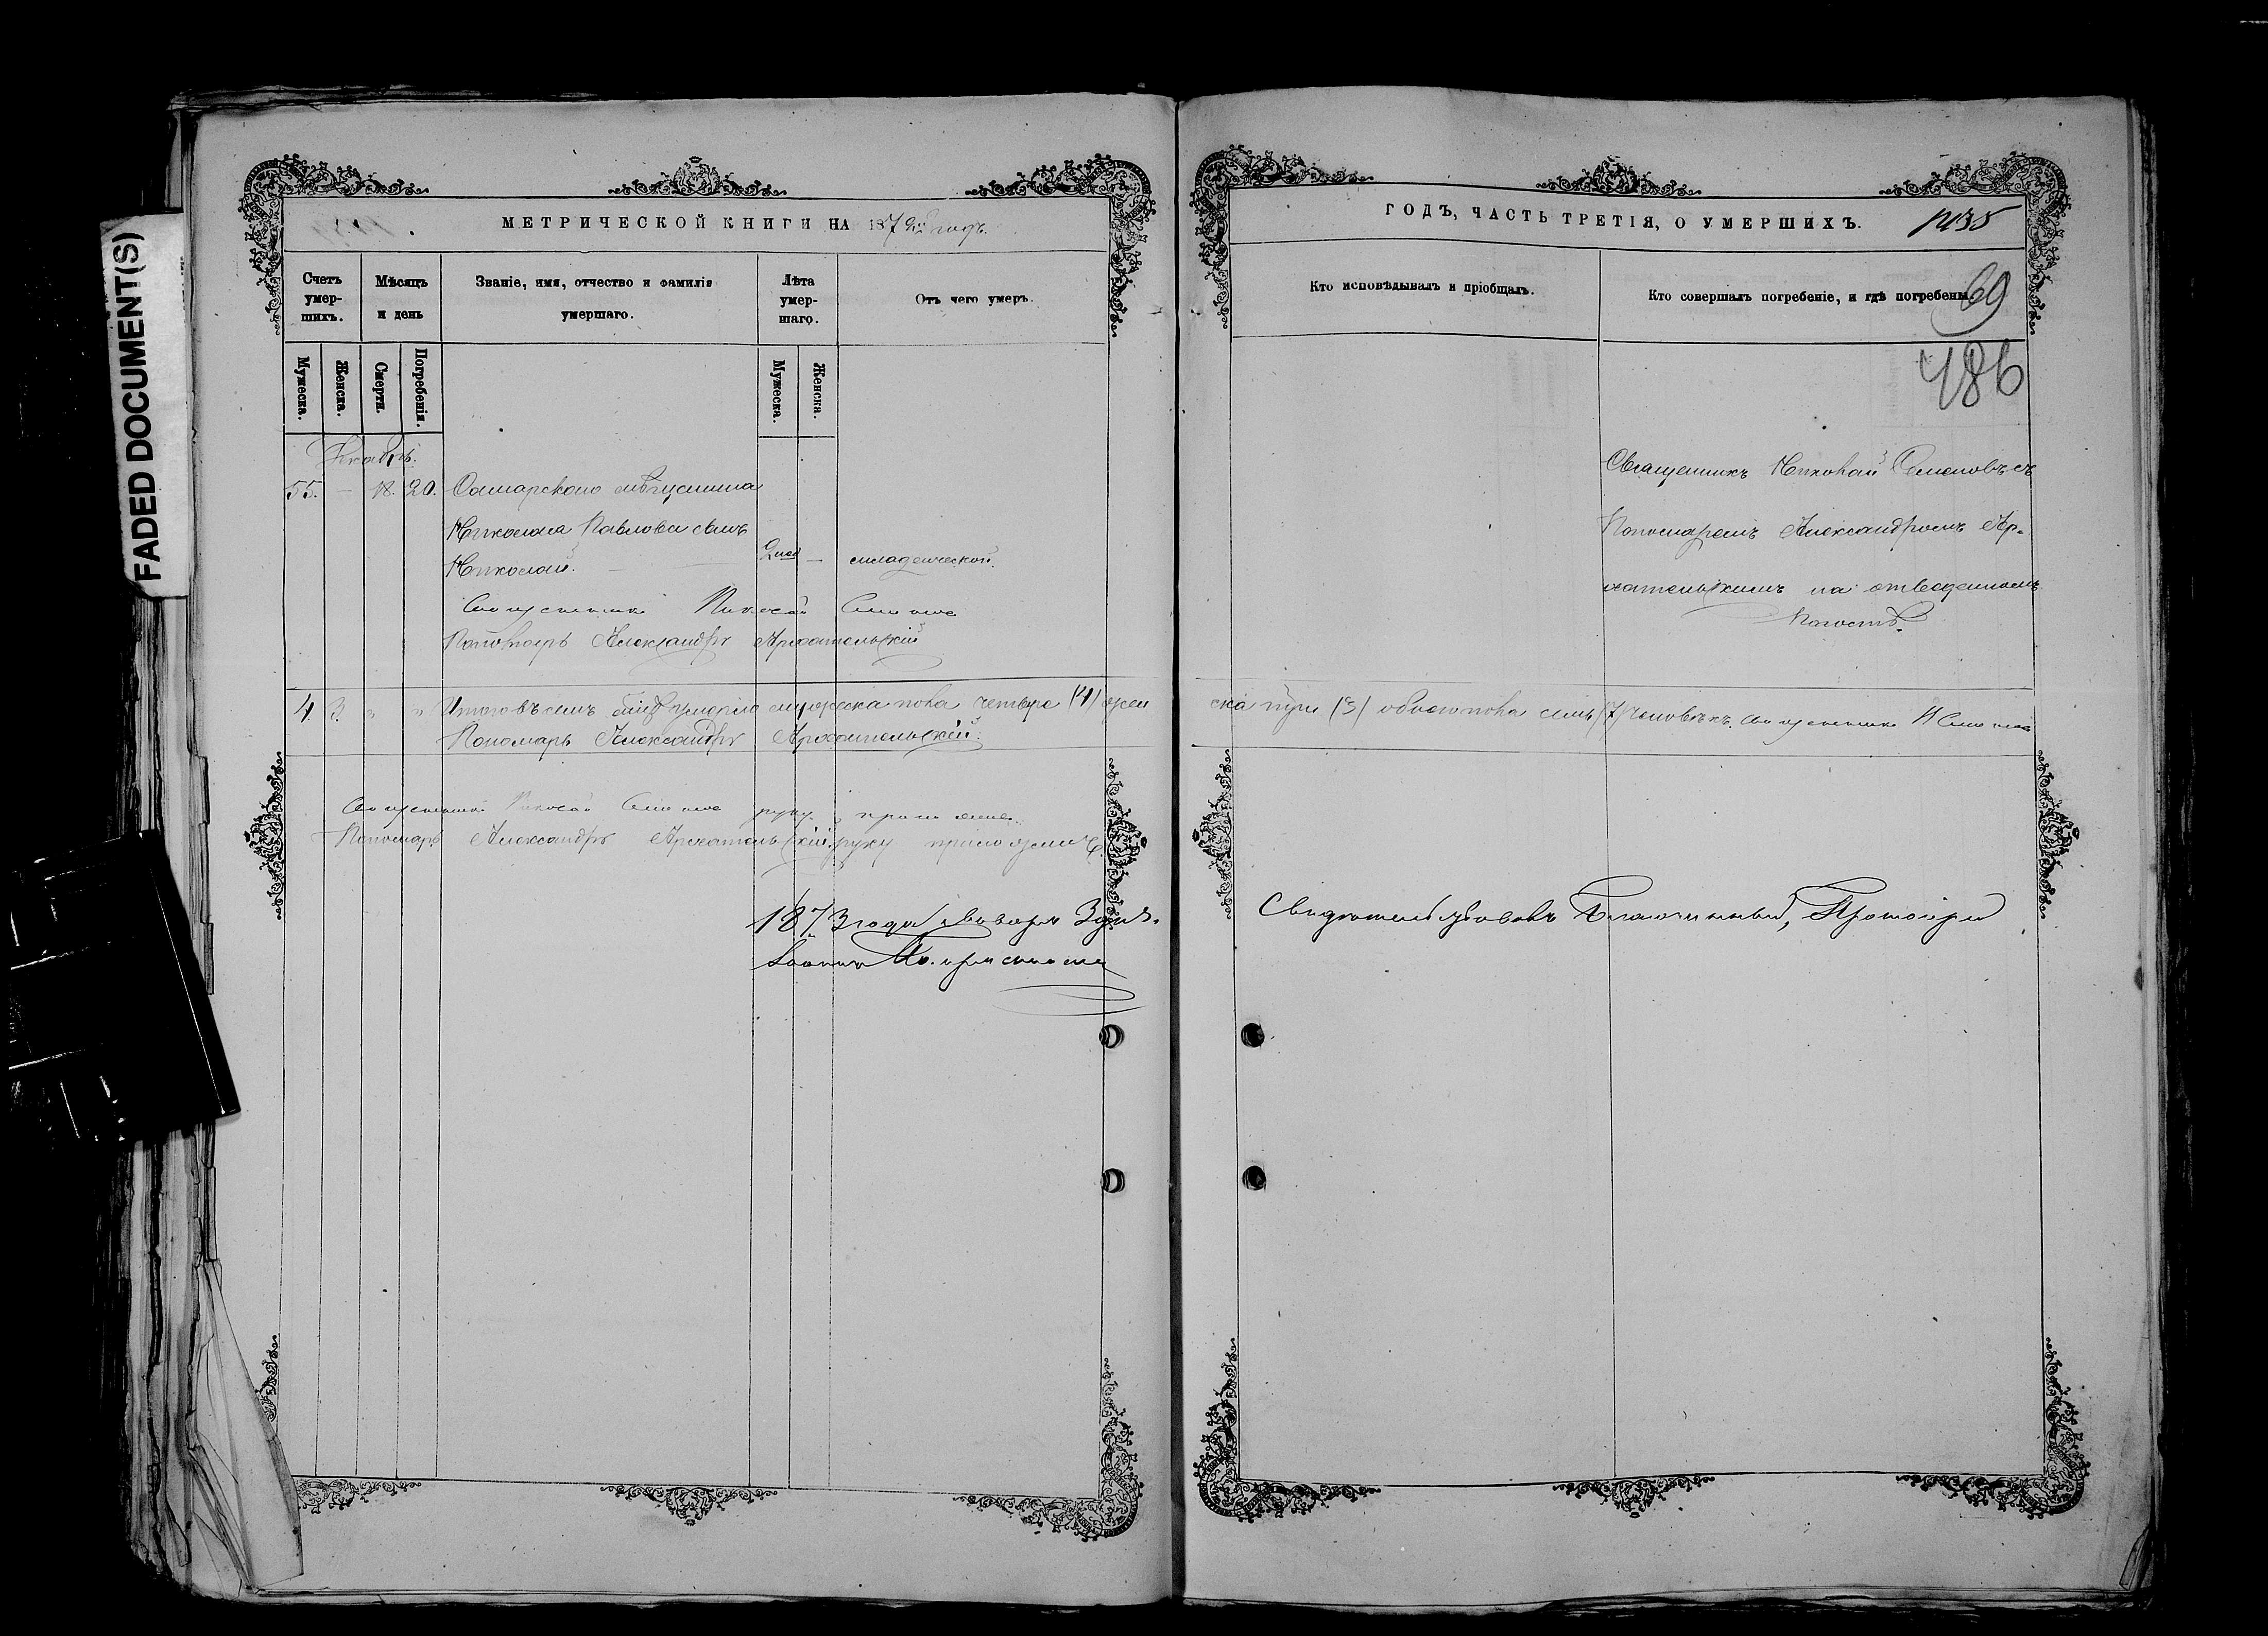 FADED DOCUMENT(S)
МЕТРИЧЕСКОЙ КНИГИ НА 1872й годъ.
Счетъ умер-шихъ.
Мѣсяцъ и день
Званіе, имя, отчество и фамилія умершаго.
Лѣта умер-шаго.
Отъ чего умеръ.
Мужеска.
Женска.
Смерти.
Погребенія.
Мужеска.
Женска.
Декабрь.
55. — 18. 20. Самарскаго мѣщанина
Николая Павлова сынъ
Николай. — — младенческой.
Священникъ Николай Семеновъ
Пономарь Александръ Архангельскій
4. 3. " " Итого въ семъ умерло мужеска пола четыре (4) жен
Пономарь Александръ Архангельскій.
Священникъ Николай Семеновъ руку приложилъ.
Пономарь Александръ Архангельскій руку приложилъ.
1873 года Января 3 дня.
ГОДЪ, ЧАСТЬ ТРЕТІЯ, О УМЕРШИХЪ.
1035
Кто исповѣдывалъ и пріобщалъ.
Кто совершалъ погребеніе, и гдѣ погребены.
69
486
Священникъ Николай Семеновъ съ
Пономаремъ Александромъ Ар-
хангельскимъ на отведенномъ
Погостѣ.
ска три (3) обоего пола семь (7) человѣкъ. Священникъ Н Семеновъ
Свидетельствовалъ Благочинный, Протоіерей